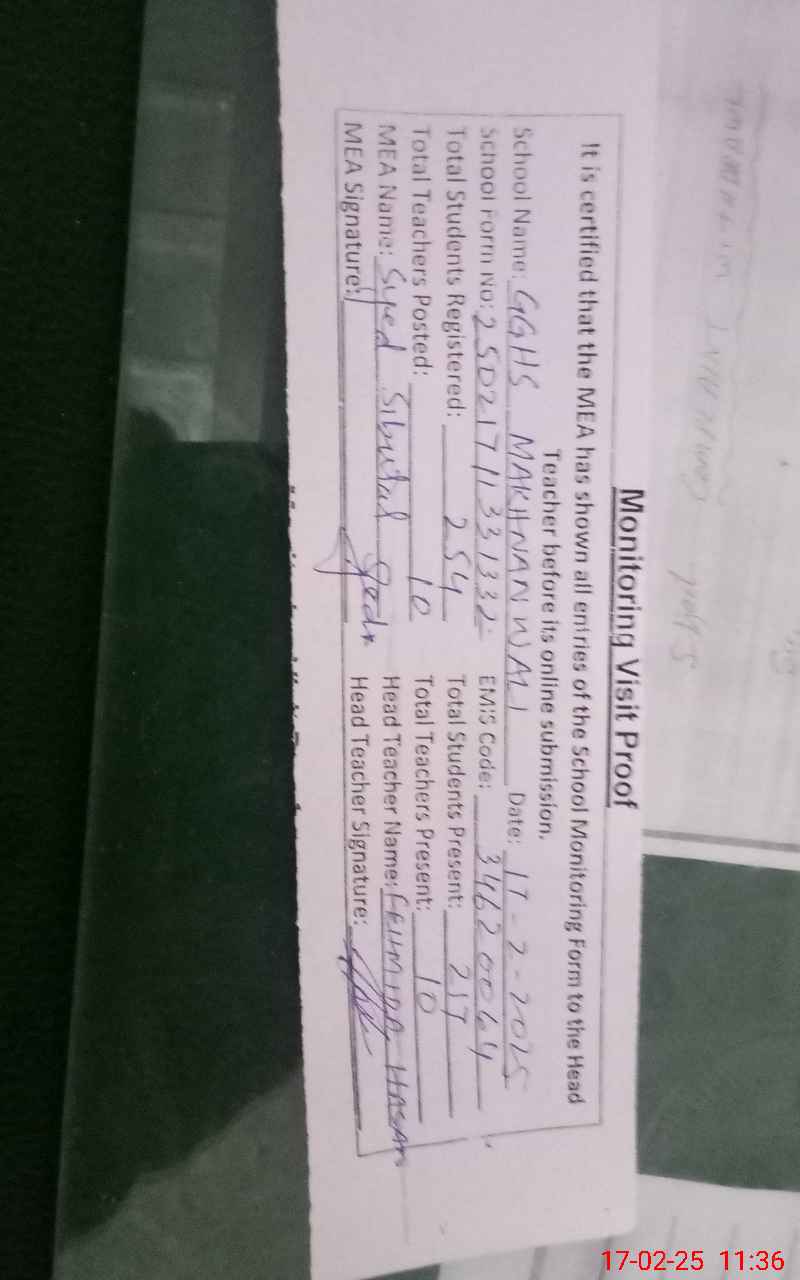 Monitoring Visit Proof
It is certified that the MEA has shown all entries of the School Monitoring Form to the Head
Teacher before its online submission.
School Name: GGHS MAKHNANWALI Date: 17-2-2025
School Form No: 25021711331332 EMIS Code: 34620064
Total Students Registered: 254 Total Students Present: 217
Total Teachers Posted: 10 Total Teachers Present: 10
MEA Name: Syed Head Teacher Name: FEHMIDA HASAN
MEA Signature: Head Teacher Signature:
17-02-25 11:36